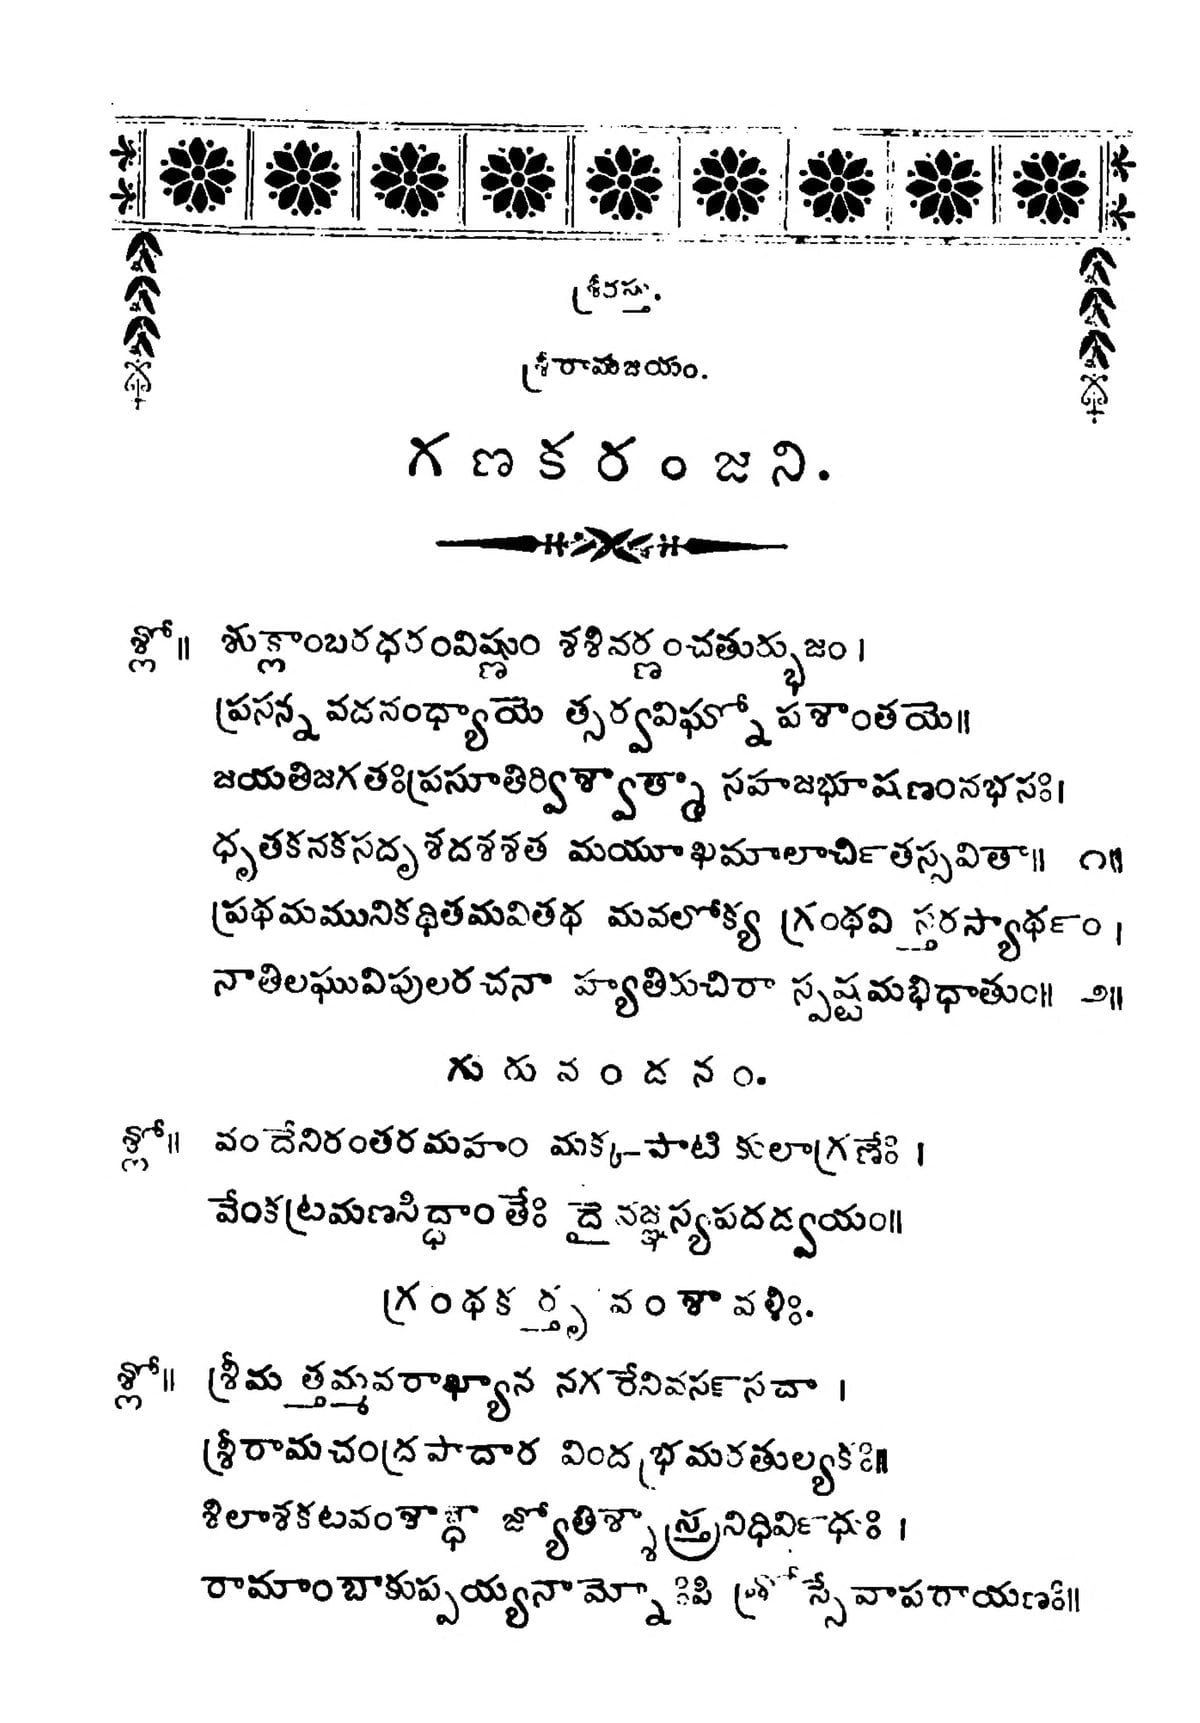 శ్రీరస్తు.
శ్రీరామజయం.
గణకరంజని.
శ్లో॥ శుక్లాంబరధరంవిష్ణుం శశివర్ణంచతుర్భుజం।
ప్రసన్న వదనంధ్యాయే త్సర్వవిఘ్నో పశాంతయే॥
జయతిజగతఃప్రసూతిర్విశ్వాత్మా సహజభూషణంనభసః।
ధృతకనకసదృశదశశత మయూఖమాలార్చితస్సవితా॥ ౧॥
ప్రథమమునికథితమవితథ మవలోక్య గ్రంథవి స్తరస్యార్థం।
నాతిలఘువిపులరచనా హ్యతిరుచిరా స్పష్టమభిధాతుం॥ ౨॥
గురువందనం.
శ్లో॥ వందేనిరంతరమహం మక్కపాటి కులాగ్రణేః।
వేంకట్రమణసిద్ధాంతేః దైవజ్ఞస్యపదద్వయం॥
గ్రంథకర్తృ వంశావళిః.
శ్లో॥ శ్రీమ త్తమ్మవరాఖ్యాన నగరేనివసన్సదా।
శ్రీరామచంద్రపాదార వింద భ్రమరతుల్యకః॥
శిలాశకటవంశాబ్ధా జ్యోతిశ్శాస్త్రనిధిర్విధుః।
రామాంబాకుప్పయ్యనామ్నోః పి వాపగాయణః॥